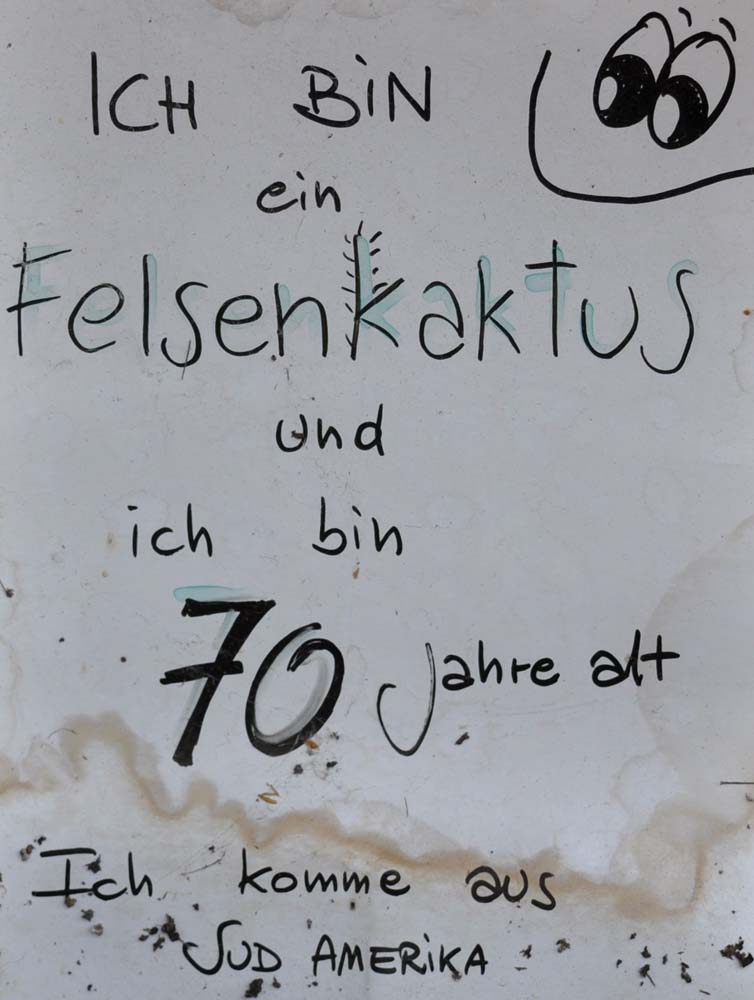 ICH BiN
ein
Felsenkaktus
und
ich bin
70 Jahre alt
Ich komme aus
SUD AMERiKA